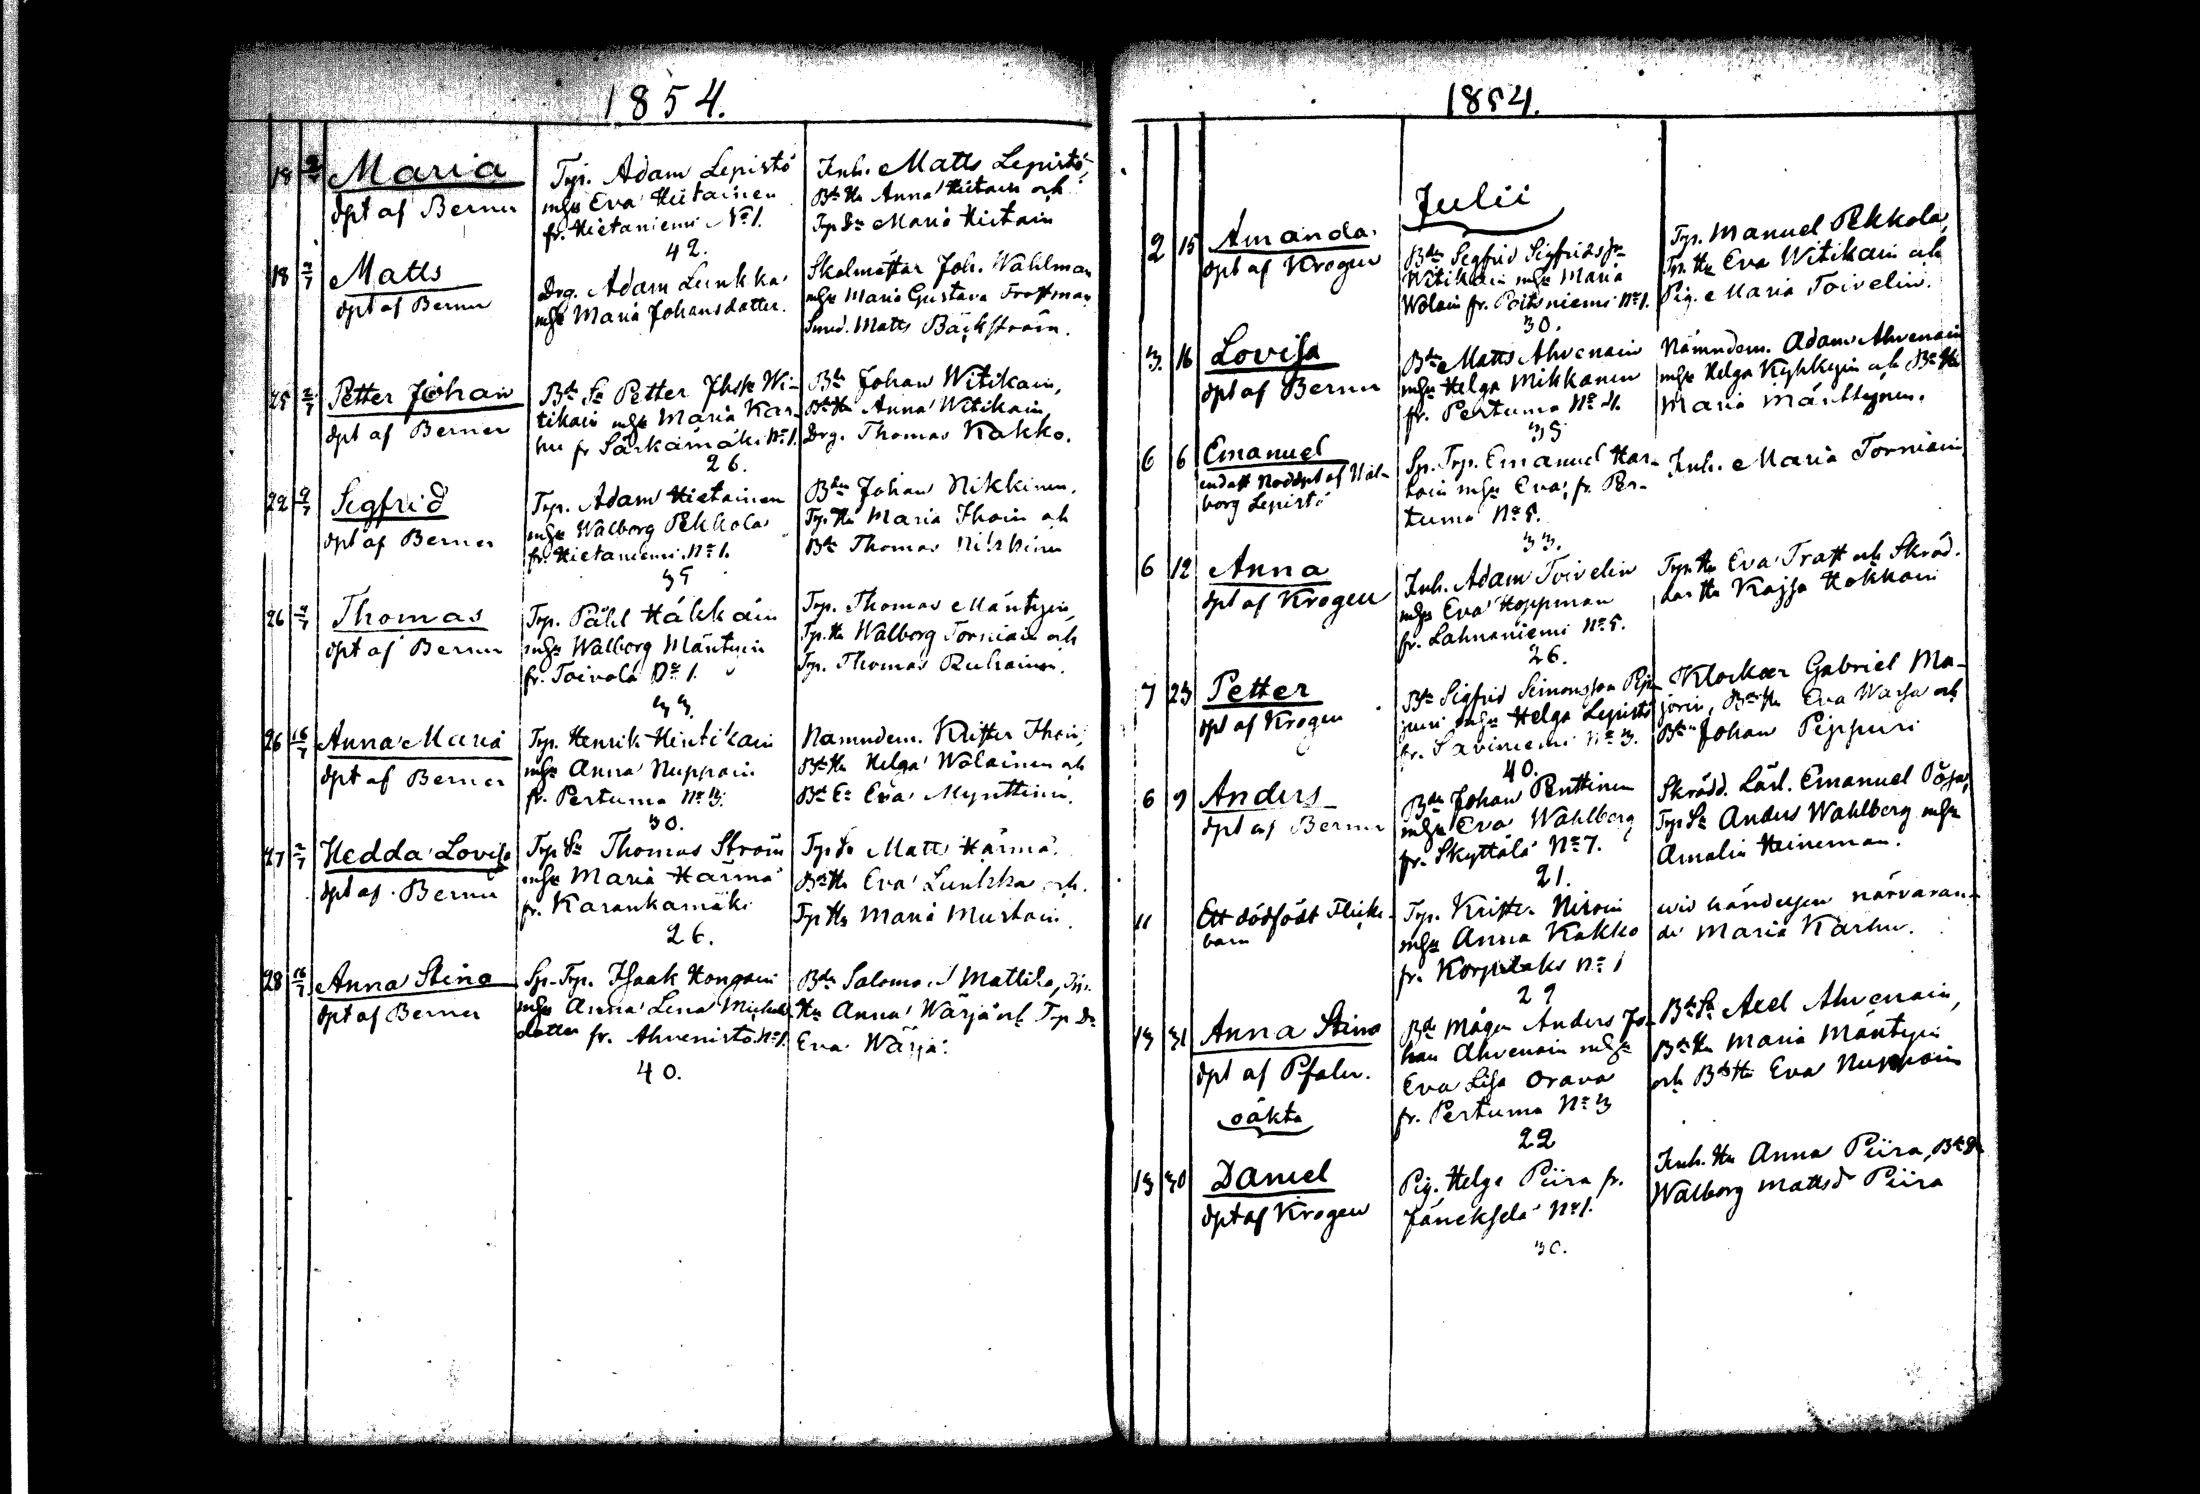 1854.
18 2/7 Maria
döpt af Berner
Tjp. Adam Lepistö
mhu Eva Hietainen
fr. Hietaniemi No 1.
42.
Inh. Matts Lepistö,
Bde Hu Anna Hietain och
Tjp Dr Maria Hietain
18 2/7 Matts
döpt af Berner
Drg. Adam Lunkka
mhu Maria Johansdotter.
Skolmästar Joh. Wahlman
mhu Maria Gustava Trottman
Smed. Matts Bäckström.
25 2/7 Petter Johan
döpt af Berner
Bde Sn Petter Jhsn Wi-
tikain mhu Maria Kar-
hu fr Särkämäki No 1.
26.
Bde Johan Witikain,
Bde Hu Anna Witikain,
Drg. Thomas Kakko.
22 9/7 Segfrid
döpt af Berner
Tjp. Adam Hietainen
mhu Walborg Pekkola
fr. Hietaniemi No 1.
35
Bden Johan Nikkinen,
Tjp Hu Maria Ihain och
Bde Thomas
26 9/7 Thomas
döpt af Berner
Tjp. Påhl Häkkäin
mhu Walborg Mäntyin
fr. Toivola No 1.
33.
Tjp. Thomas Mäntyin,
Tjp. Hu Walborg Torniain och
Tjp. Thomas Ruhainen.
26 16/7 Anna Maria
döpt af Berner
Tjp. Henrik Hintikain
mhu Anna Nuppoin
fr. Pertuma No 3.
30.
Nämndem. Krister Ihain,
Bde Hu Helga Wolainen och
Bde En Eva Mynttinen.
27 2/7 Hedda Lovisa
döpt af Berner
Tjp Sn Thomas Ström
mhu Maria Härmä
fr. Karankamäki
26.
Tjp Sn Matts Härmä.
Bde Hu Eva Lunkka och
Tjp Hu Maria Mustoin.
28 16/7 Anna Stina
döpt af Berner
Sp. Tjp. Isaak Hongain
mhu Anna Lena Michels
dotter fr. Ahvenisto No 1.
40.
Bde Salomo Mattila, Tjp.
Hu Anna Wärjä och Tjp Dr
Eva Wärjä.
1854.
Julii
2 15 Amanda.
döpt af Krogeu
Bden Segfrid Sigfridsson
Witikain mhu Maria
Wolain fr. Poitsniemi No 1.
30.
Tjp. Manuel Pekkola,
Tjp. Hu Eva Witikain och
Pig. Maria Toivelin.
3. 16 Lovisa
döpt af Berner
Bde Matts Ahvenain
mhu Helga Mikkanen
fr. Pertuma No 4.
35
Nämndem. Adam Ahvenain
mhu Helga Kyhkyin och Bde Hu
Maria Mänttynen.
6 6 Emanuel
endast Nöddöpt af Wal-
borg Lepistö
Sp. Tjp. Emanuel Har-
toin mhu Eva, fr. Per-
tuma No 5.
33.
Inh. Maria Torniain
6 12 Anna
döpt af Krogeu
Inh. Adam Toivelin
mhu Eva Hoppman
fr. Lahnaniemi No 5.
26.
Tjp. Hu Eva Tratt och Skräd-
dar Hu Kajsa Hokkain
7 23 Petter
döpt af Krogeu
Bde Sigfrid Simonsson Pip-
puri mhu Helga Lepistö
fr. Saviniemi No 3.
40.
Klockar Gabriel Ma-
jorin, Bde Hu Eva Warja och
Bden Johan Pippuri
6 9 Anders
döpt af Berner
Bde Johan Penttinen
mhu Eva Wahlberg
fr. Skyttälä No 7.
21.
Skrädd. Lärl. Emanuel
Tjp Sn Anders Wahlberg mhu
Amalia Heineman.
11 Ett dödfödt Flicke-
barn
Tjp. Krister Niroin
mhu Anna Kakko
fr. Korpilaks No 1
29
wid händelsen närvaran-
de Maria Karhu.
13 31 Anna Stina
döpt af Pfaler.
oäkta
Bde Mågen Anders Jo-
han Ahvenain mhu
Eva Lisa Orava
fr. Pertuma No 3
22
Bde Sn Axel Ahvenain,
Bde Hu Maria Mäntyin
och Bde Hu Eva Nuppoin
13 30 Daniel
döpt af Krogeu
Pig. Helga Piira fr.
Jänekselä No 1.
30.
Inh. Hu Anna Piira, Bde Dr
Walborg Mattsdr Piira